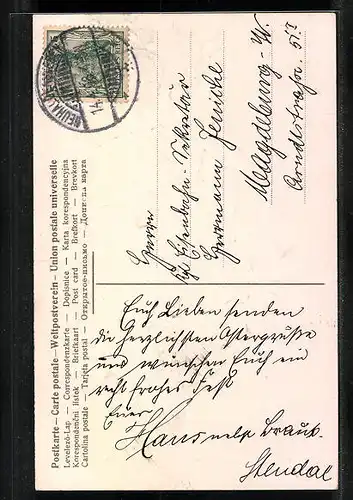 Postkarte — Carte postale — Weltpostverein — Union postale universelle
Levelező-Lap — Correspondenzkarte — Dopisnice — Karta korespondencyjna
Korespondenční lístek — Briefkaart — Post card — Brefkort — Brevkort
Cartolina postale — Tarjeta postal — Открытое письмо — Дописна карта
NEUHALDENSLEBEN
14.
Herrn
Kgl. Eisenbahn-Sekretär
Hermann Jenicke
Magdeburg-W.
Arndtstraße 5
Euch Lieben senden
die herzlichsten Ostergrüße
und wünschen Euch ein
recht frohes Fest
Euer
Hans nebst Braut.
Stendal